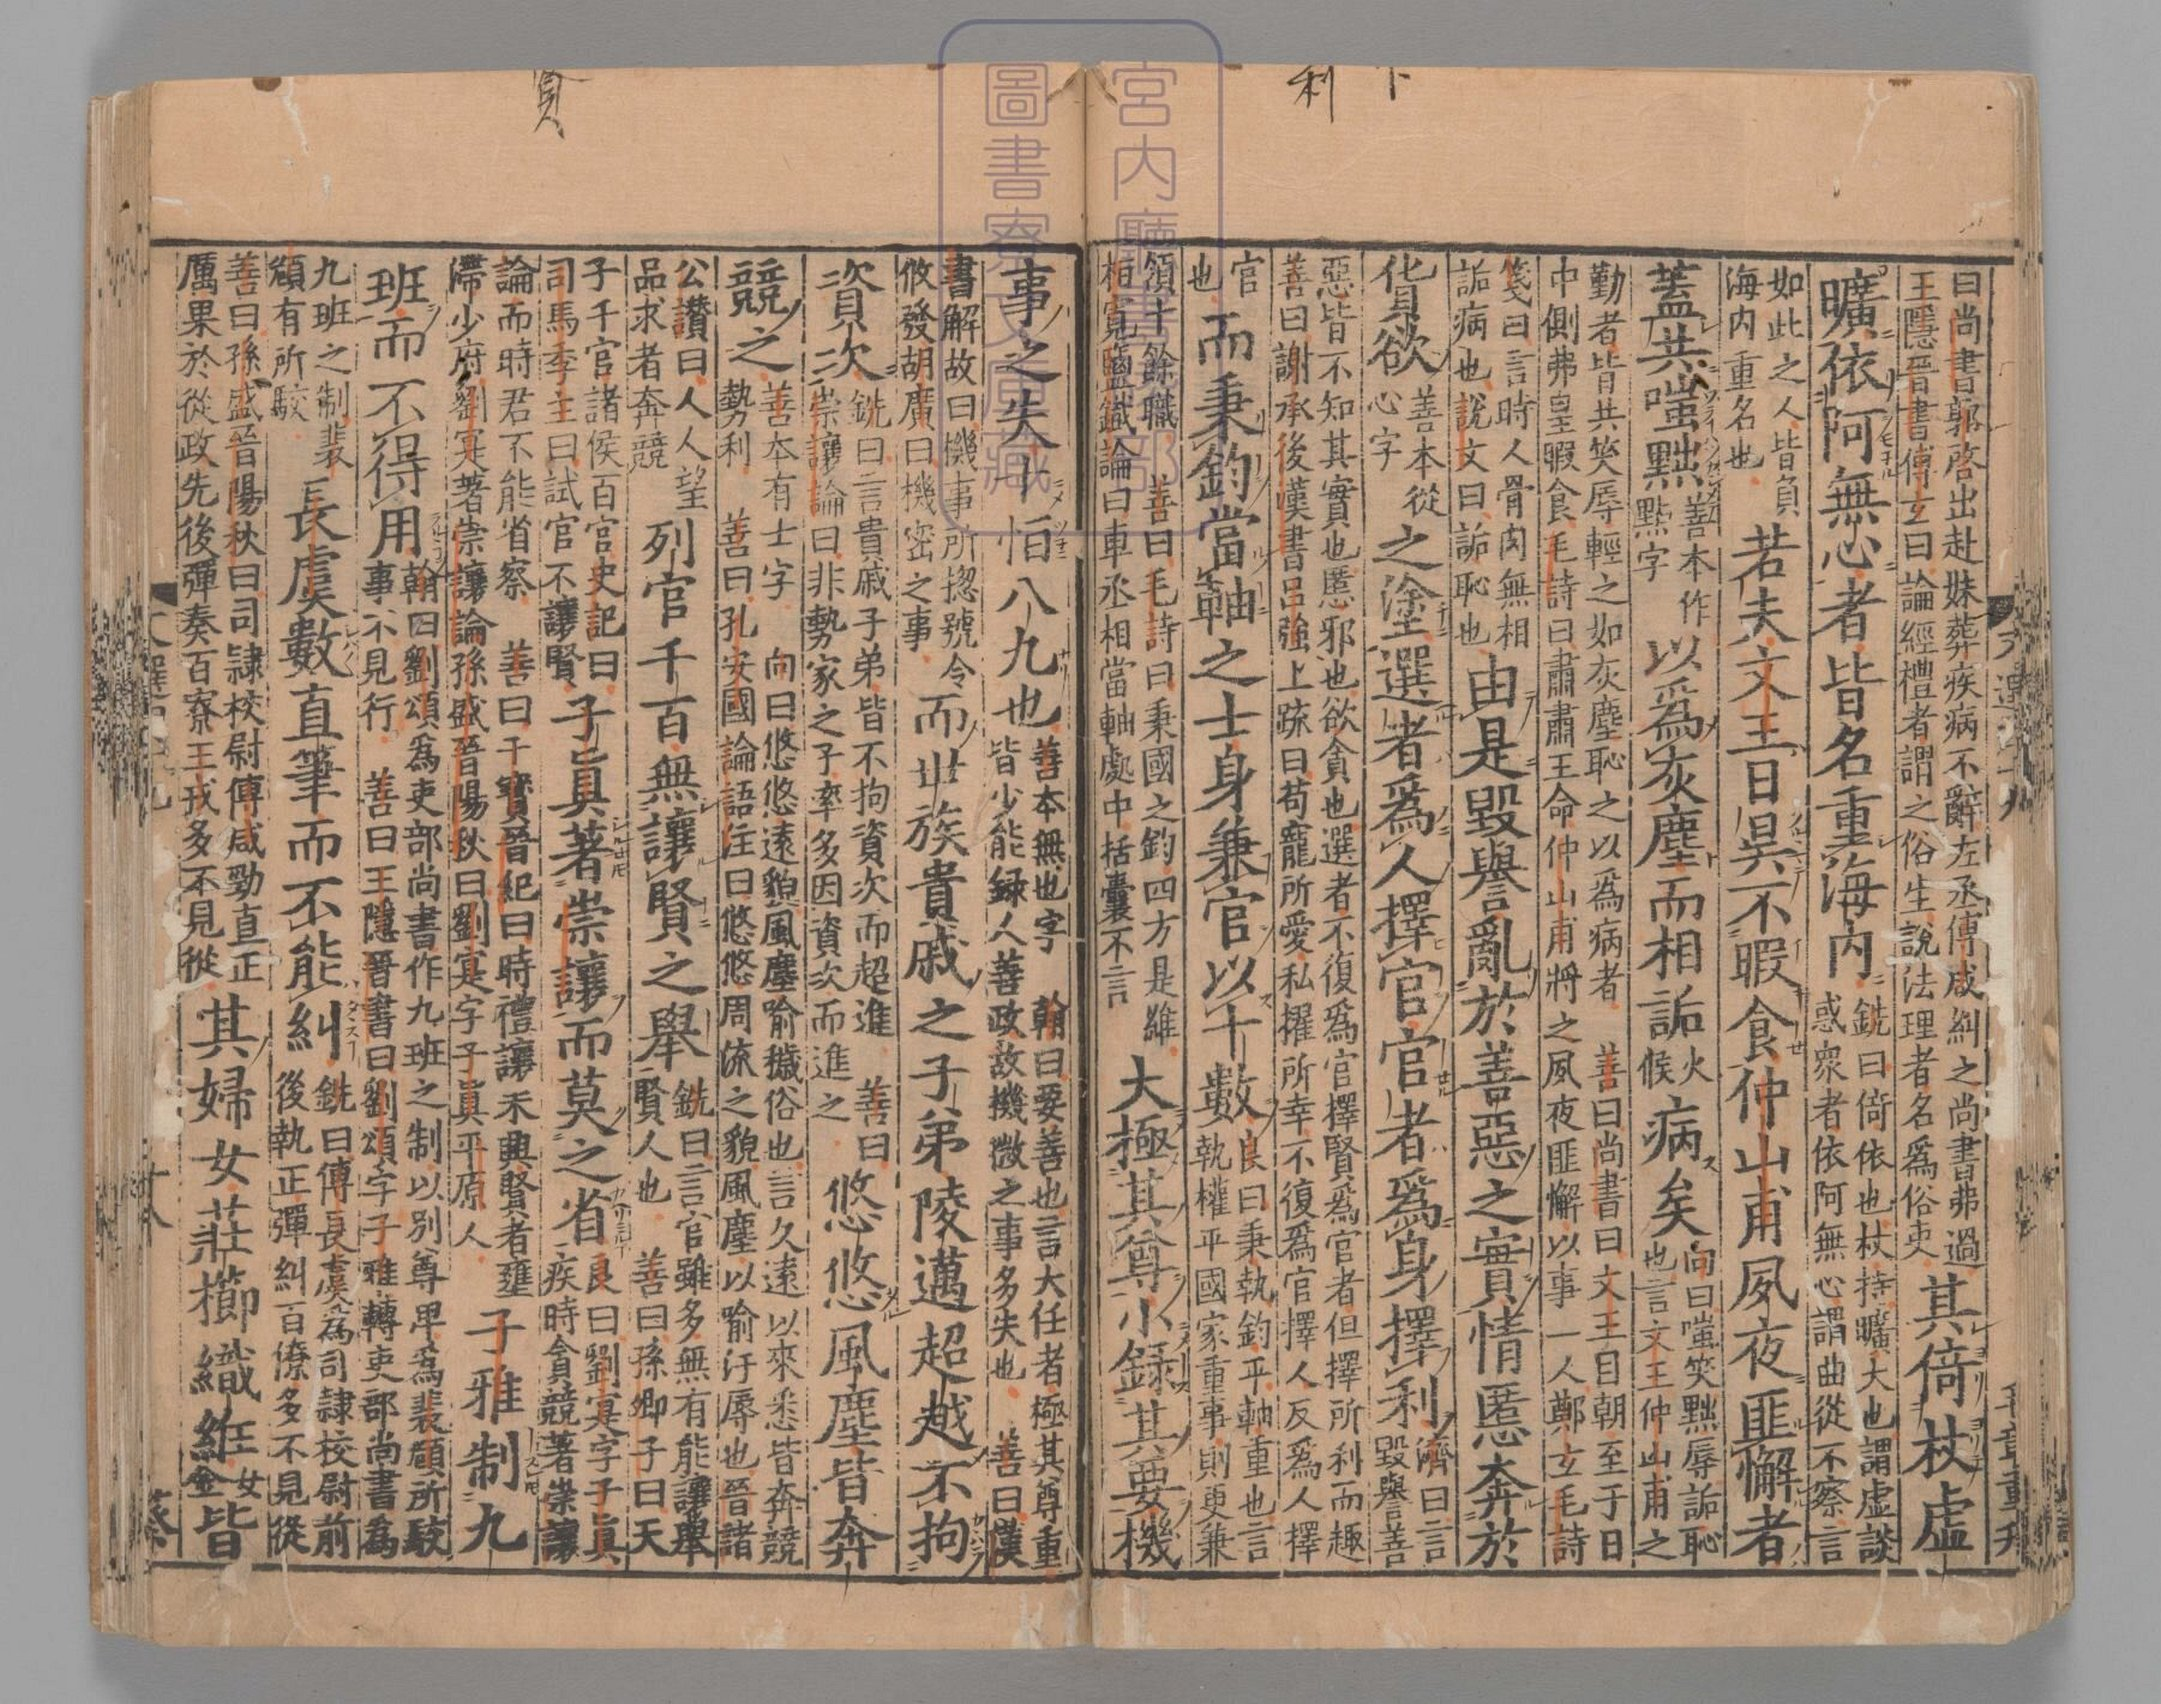 曰尚書郭啓出赴妹葬疾病不辭左丞傅咸糾之尚書弗過
王隱晉書傅玄曰論經禮者謂之俗生說法理者名爲俗吏
其倚杖虛
曠依阿無心者皆名重海内
銑曰倚依也杖持曠大也謂虛談
惑衆者依阿無心謂曲從不察言
如此之人皆負
海内重名也
若夫文王日昃不暇食仲山甫夙夜匪懈者
蓋共嗤黜
善本作
點字
以爲灰塵而相詬
火
候
病矣
向曰嗤笑黜辱詬恥
也言文王仲山甫之
勤者皆共笑辱輕之如灰塵恥之以爲病者 善曰尚書曰文王自朝至于日
中側弗皇暇食毛詩曰肅肅王命仲山甫將之夙夜匪懈以事一人鄭玄毛詩
箋曰言時人骨肉無相
詬病也說文曰詬恥也
由是毀譽亂於善惡之實情慝奔於
貨欲
善本從
心字
之塗選者爲人擇官官者爲身擇利
濟曰言
毀譽善
惡皆不知其實也慝邪也欲貪也選者不復爲官擇賢爲官者但擇所利而趣
善曰謝承後漢書呂強上疏曰苟寵所愛私擢所幸不復爲官擇人反爲人擇
官
也
而秉鈞當軸之士身兼官以十數
良曰秉執鈞平軸重也言
執權平國家重事則更兼
領十餘職 善曰毛詩曰秉國之鈞四方是維
桓寬鹽鐵論曰車丞相當軸處中括囊不言
大極其尊小録其要機
事之失十恒八九也
善本無也字 翰曰要善也言大任者極其尊重
皆少能録人善政故機微之事多失也 善曰漢
書解故曰機事所揔號令
攸發胡廣曰機密之事
而世族貴戚之子弟陵邁超越不拘
資次
銑曰言貴戚子弟皆不拘資次而超進 善曰
崇讓論曰非勢家之子率多因資次而進之
悠悠風塵皆奔
競之
善本有士字 向曰悠悠遠貌風塵喻穢俗也言久遠以來悉皆奔競
勢利 善曰孔安國論語注曰悠悠周流之貌風塵以喻汙辱也晉諸
公讃曰人人望
品求者奔競
列官千百無讓賢之舉
銑曰言官雖多無有能讓舉
賢人也 善曰孫卿子曰天
子千官諸侯百官史記曰
司馬季主曰試官不讓賢
子真著崇讓而莫之省
良曰劉寔字子眞
疾時貪競著崇讓
論而時君不能省察 善曰干寶晉紀曰時禮讓未興賢者壅
滯少府劉寔著崇讓論孫盛晉陽秋曰劉寔字子眞平原人
子雅制九
班而不得用
翰曰劉頌爲吏部尚書作九班之制以別尊卑爲裴頠所駮
事不見行 善曰王隱晉書曰劉頌字子雅轉吏部尚書爲
九班之制裴
頠有所駮
長虞數直筆而不能糾
銑曰傅長虞爲司隷校尉前
後執正彈糾百僚多不見從
善曰孫盛晉陽秋曰司隷校尉傅咸勁直正
厲果於從政先後彈奏百寮王戎多不見從
其婦女莊櫛織絍
女
金
皆
宮内廳書陵部
圖書寮文庫藏
利